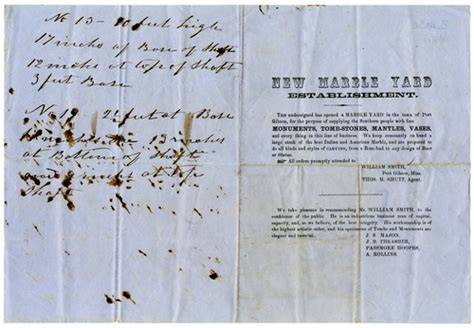 No 13 - 10 feet high
17 inches of Base of Shaft
12 inches at top of Shaft
3 feet Base
No 12 2 feet at Base
13 inches
at Bottom of Shaft
at top
Shaft
NEW MARBLE YARD
ESTABLISHMENT.
THE undersigned has opened a MARBLE YARD in the town of Port
Gibson, for the purpose of supplying the Southern people with fine
MONUMENTS, TOMB-STONES, MANTLES, VASES,
and every thing in this line of business. We keep constantly on hand a
large stock of the best Italian and American Marble, and are prepared to
do all kinds and styles of CARVING, from a Rose-bud to any design of Bust
or Statue.
All orders promptly attended to
WILLIAM SMITH,
Port Gibson, Miss.
THOS. R. SHUTT, Agent.
We take pleasure in recommending Mr. WILLIAM SMITH, to the
confidence of the public. He is an industrious business man of capital,
capacity, and, as we believe, of the best integrity. His workmanship is of
the highest artistic order, and his specimens of Tombs and Monuments are
elegant and tasteful.
J. S. MASON,
J. B. THRASHER,
PASSMORE HOOPES,
A. ROLLINS.